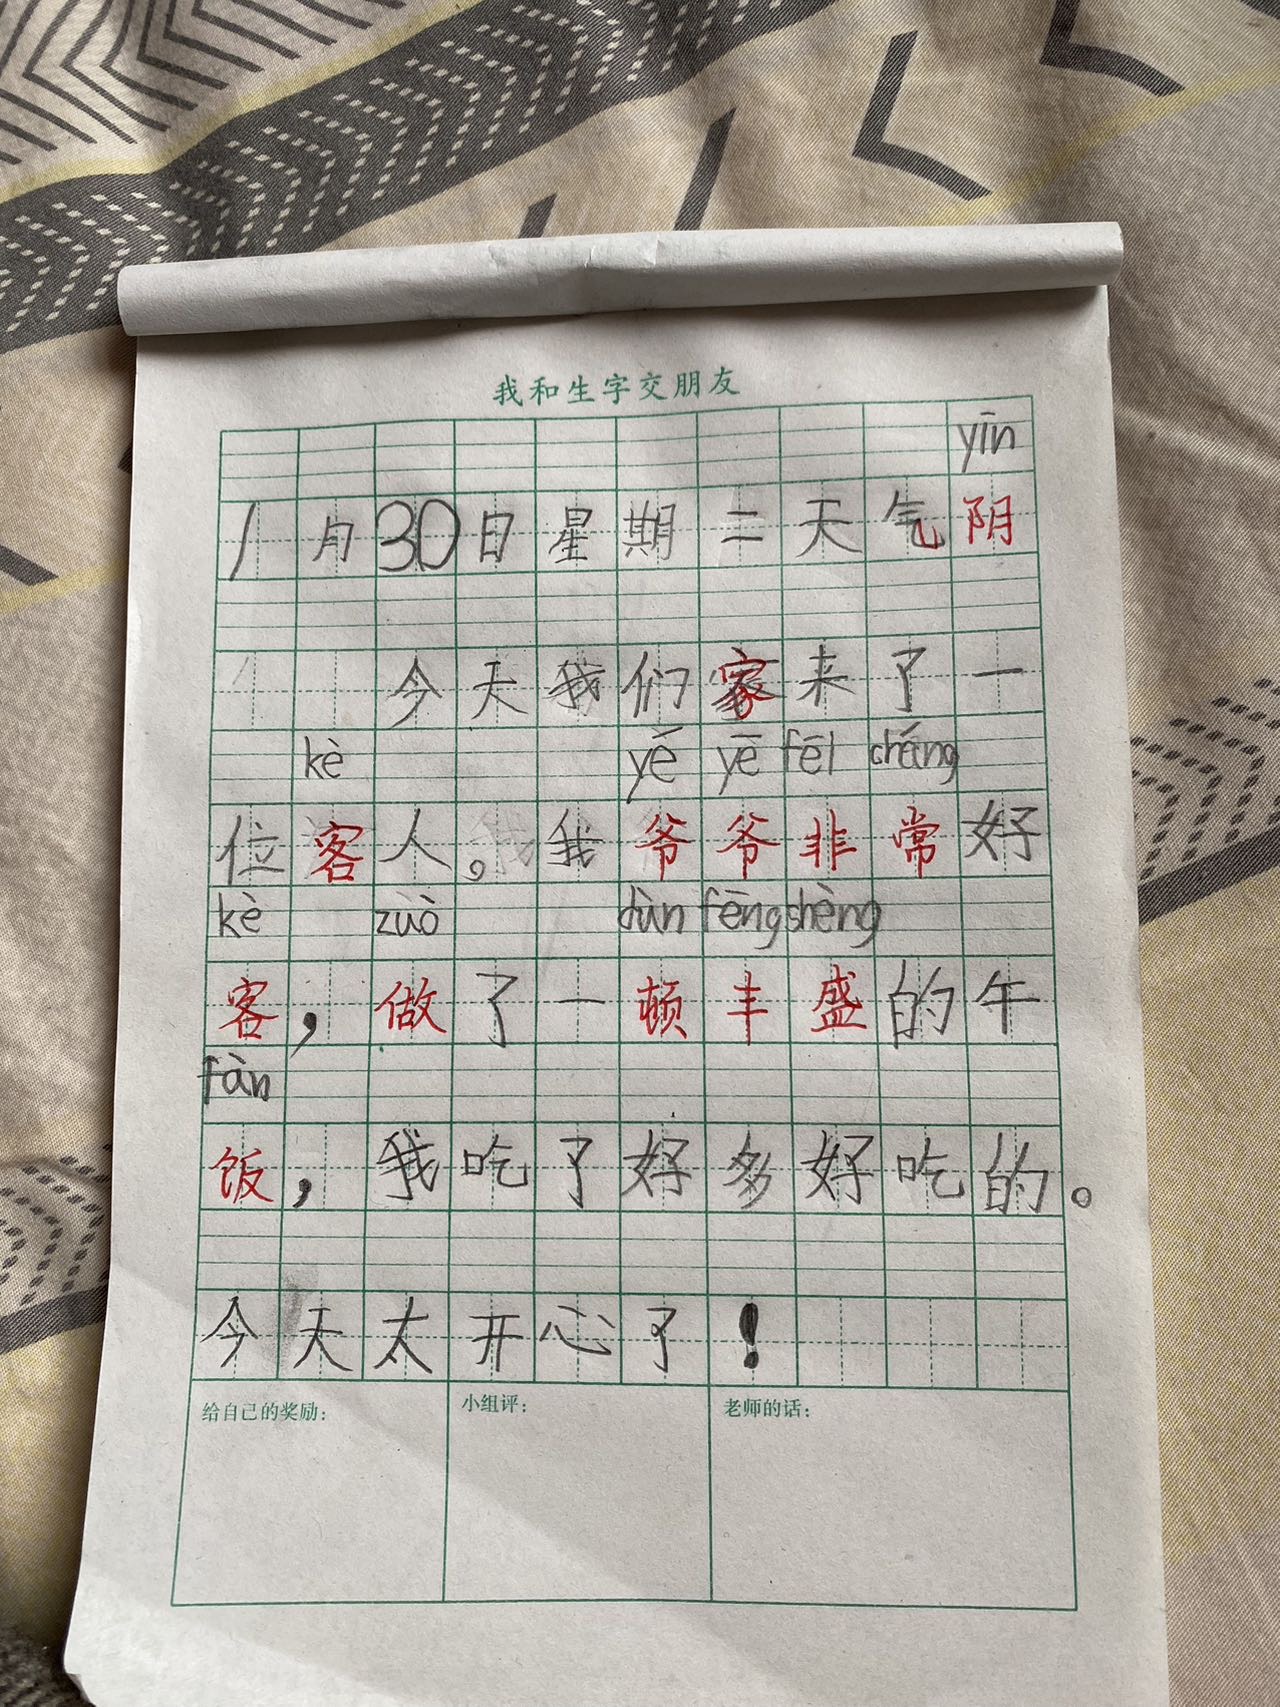 我和生字交朋友
yīn
1月30日星期二天气阴
今天我们家来了一
kè yé yē fēi cháng
位客人。我爷爷非常好
kè zuò dùn fēng shèng
客，做了一顿丰盛的午
fàn
饭，我吃了好多好吃的。
今天太开心了！
给自己的奖励：
小组评：
老师的话：